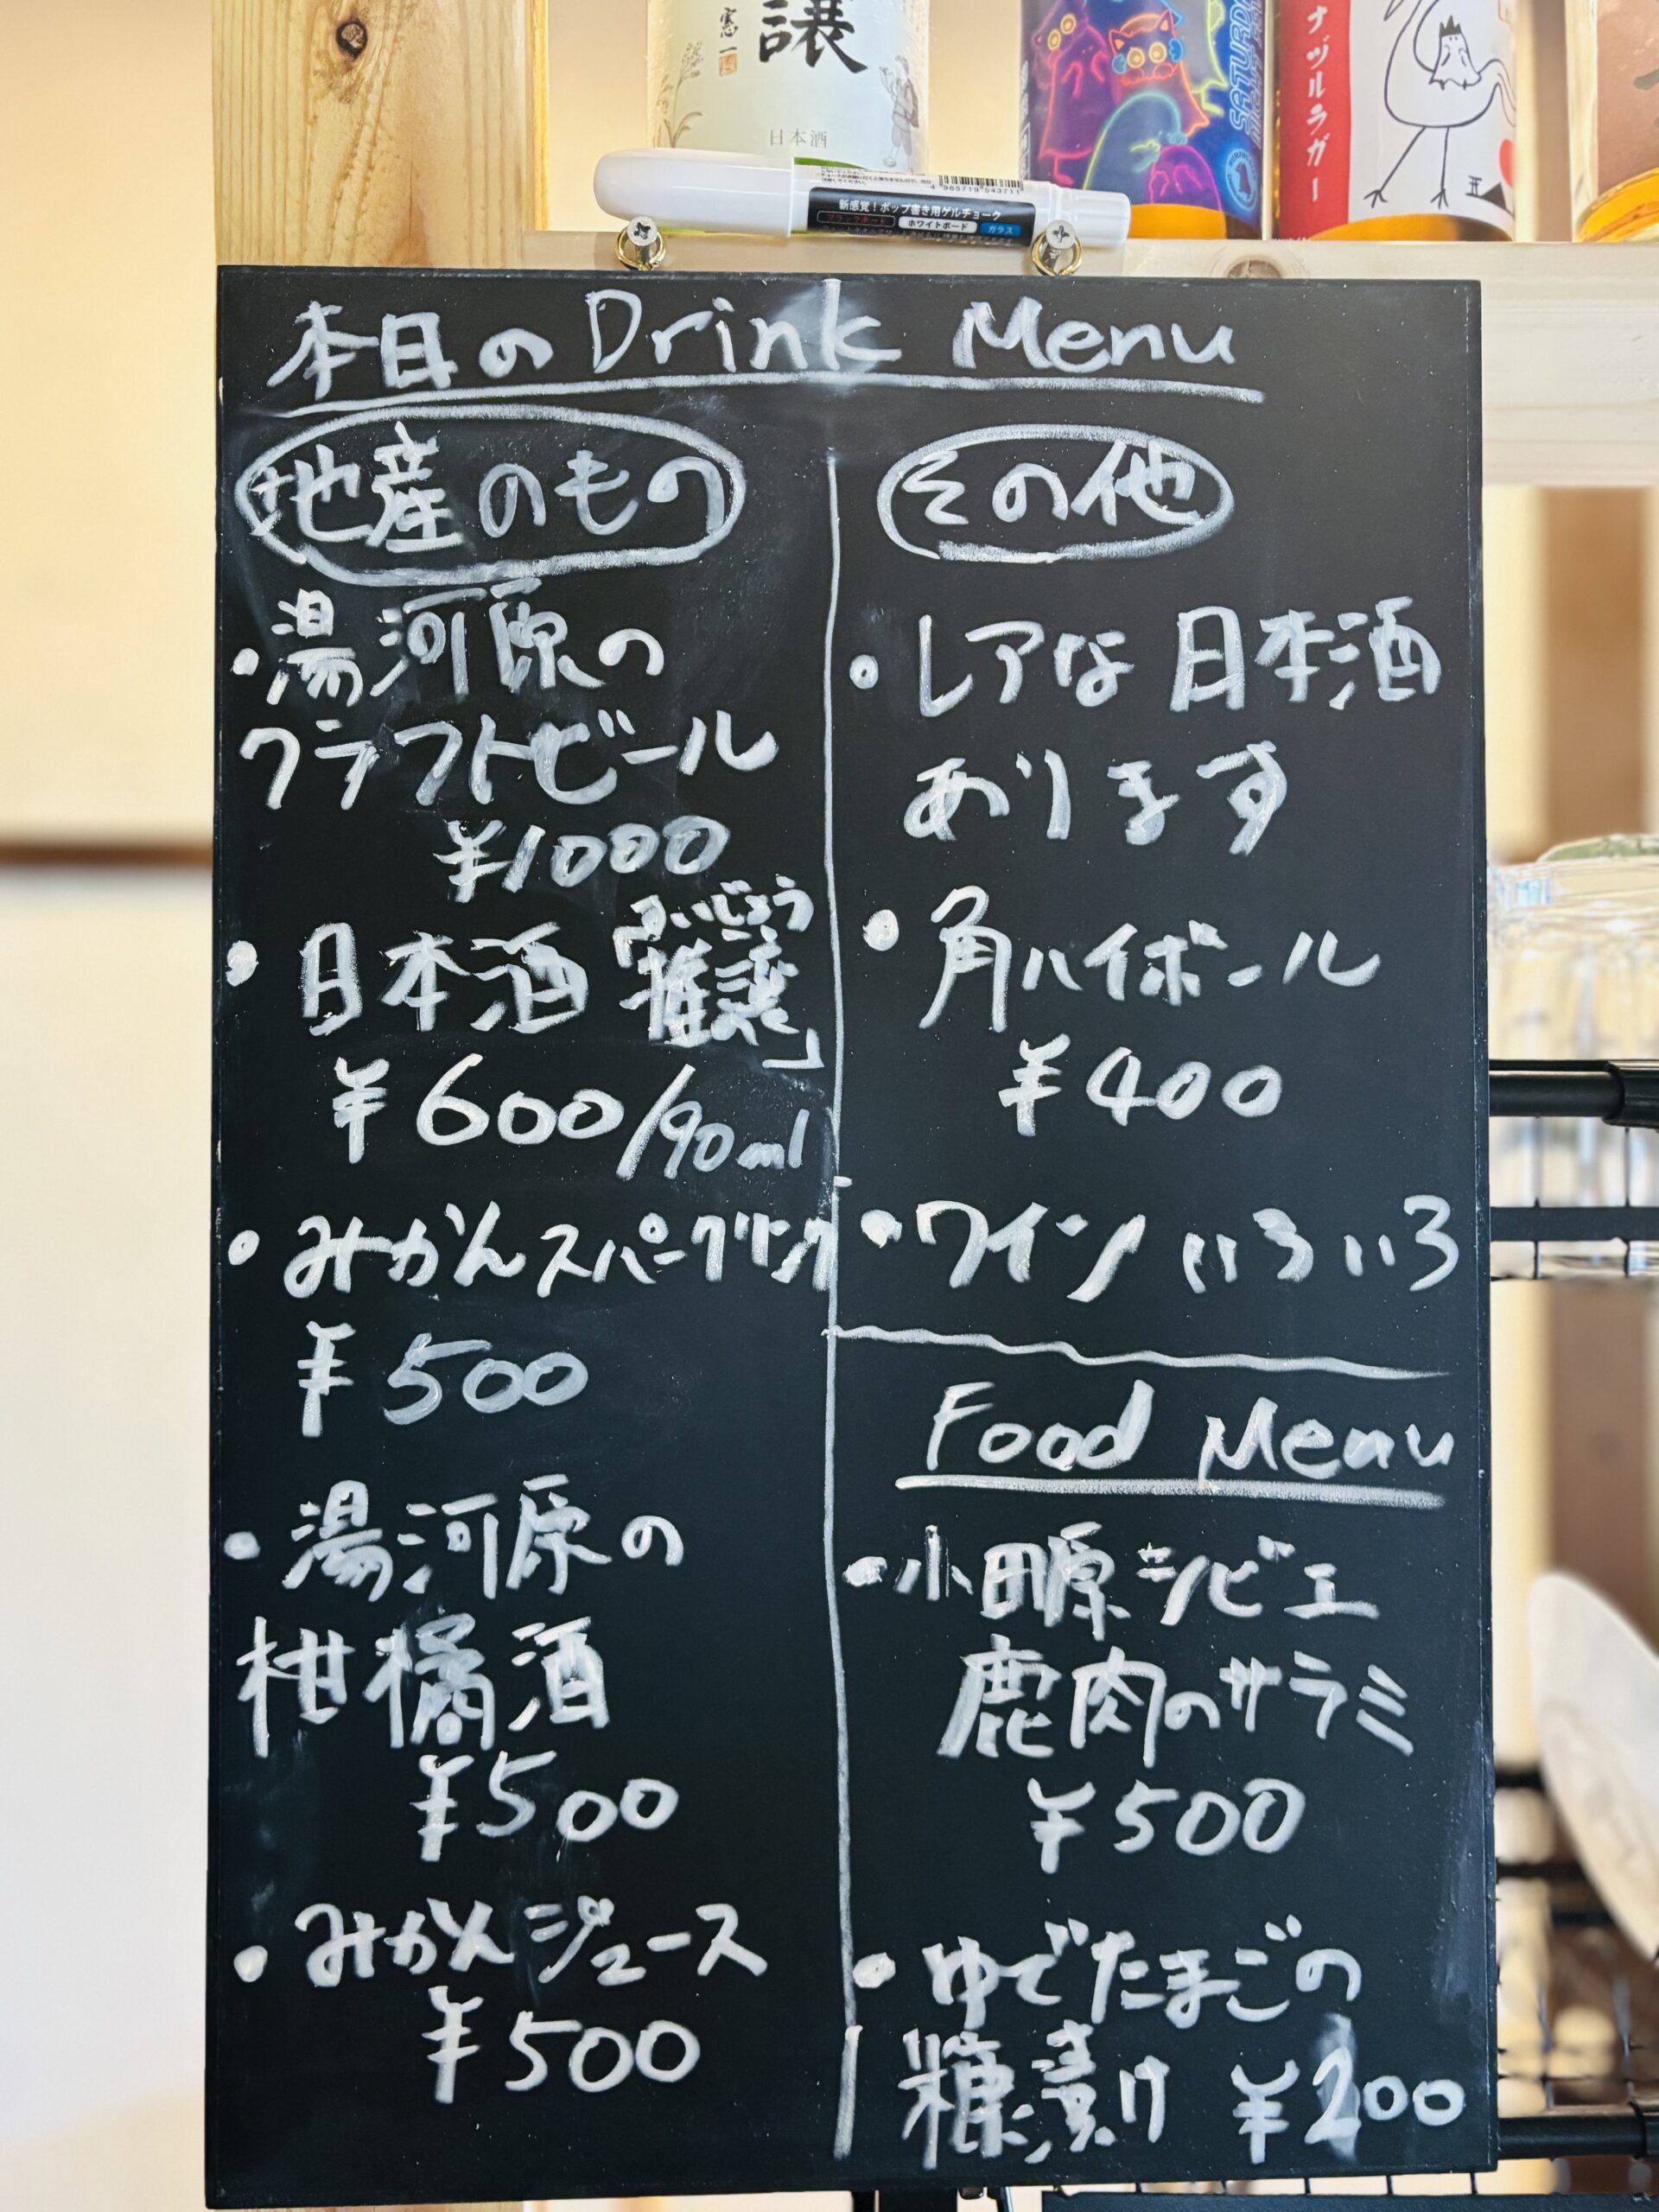 譲
憲一
日本酒
SATURDAY
ナヅルラガー
4 965719 543711
新感覚！ポップ書き用ゲルチョーク
ブラックボード ホワイトボード ガラス
本日の Drink Menu
地産のもの
・湯河原の
クラフトビール
¥1000
・日本酒「推譲」
すいじょう
¥600/90ml
・みかんスパークリング
¥500
・湯河原の
柑橘酒
¥500
・みかんジュース
¥500
その他
・レアな日本酒
あります
・角ハイボール
¥400
・ワインいろいろ
Food Menu
・小田原ジビエ
鹿肉のサラミ
¥500
・ゆでたまごの
糠漬け ¥200